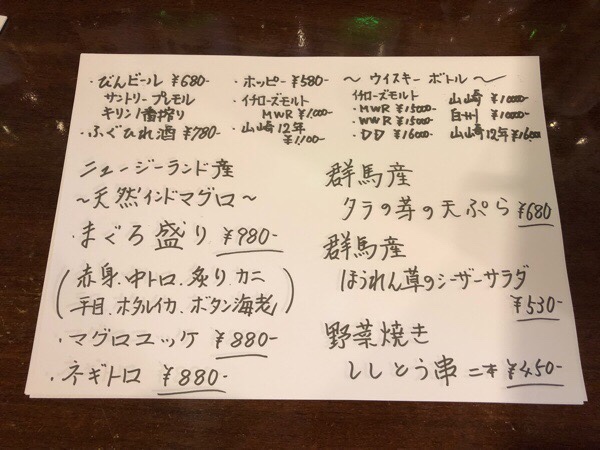 ・びんビール ¥680-
サントリープレモル
キリン1番搾り
・ふぐひれ酒 ¥780-
・ホッピー ¥580-
・イチローズモルト
MWR ¥1,000-
・山崎12年
¥1,100
～ウイスキーボトル～
イチローズモルト
・MWR ¥15000-
・WWR ¥15000-
・DD ¥16000-
山崎 ¥10000-
白州 ¥10000-
山崎12年 ¥16,000
ニュージーランド産
～天然インドマグロ～
・まぐろ盛り ¥980-
(赤身、中トロ、炙り、カニ
平目、ホタルイカ、ボタン海老)
・マグロユッケ ¥880-
・ネギトロ ¥880-
群馬産
タラの芽の天ぷら ¥680
群馬産
ほうれん草のシーザーサラダ
¥530-
野菜焼き
ししとう串 二本 ¥450-